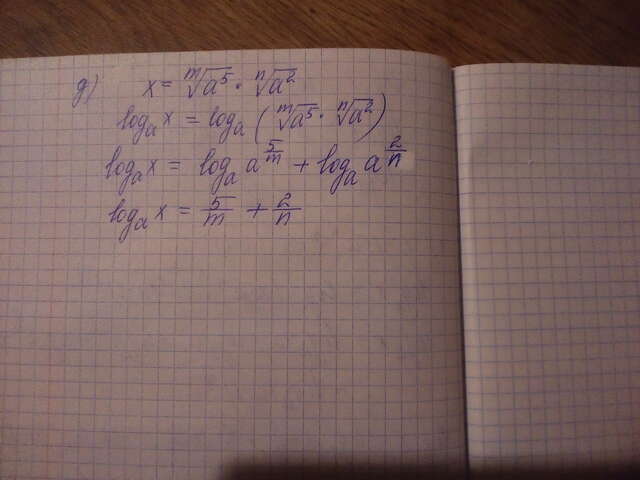 д) x = ᵐ√a⁵ · ⁿ√a²
logₐ x = logₐ (ᵐ√a⁵ · ⁿ√a²)
logₐ x = logₐ a^(5/m) + logₐ a^(2/n)
logₐ x = 5/m + 2/n